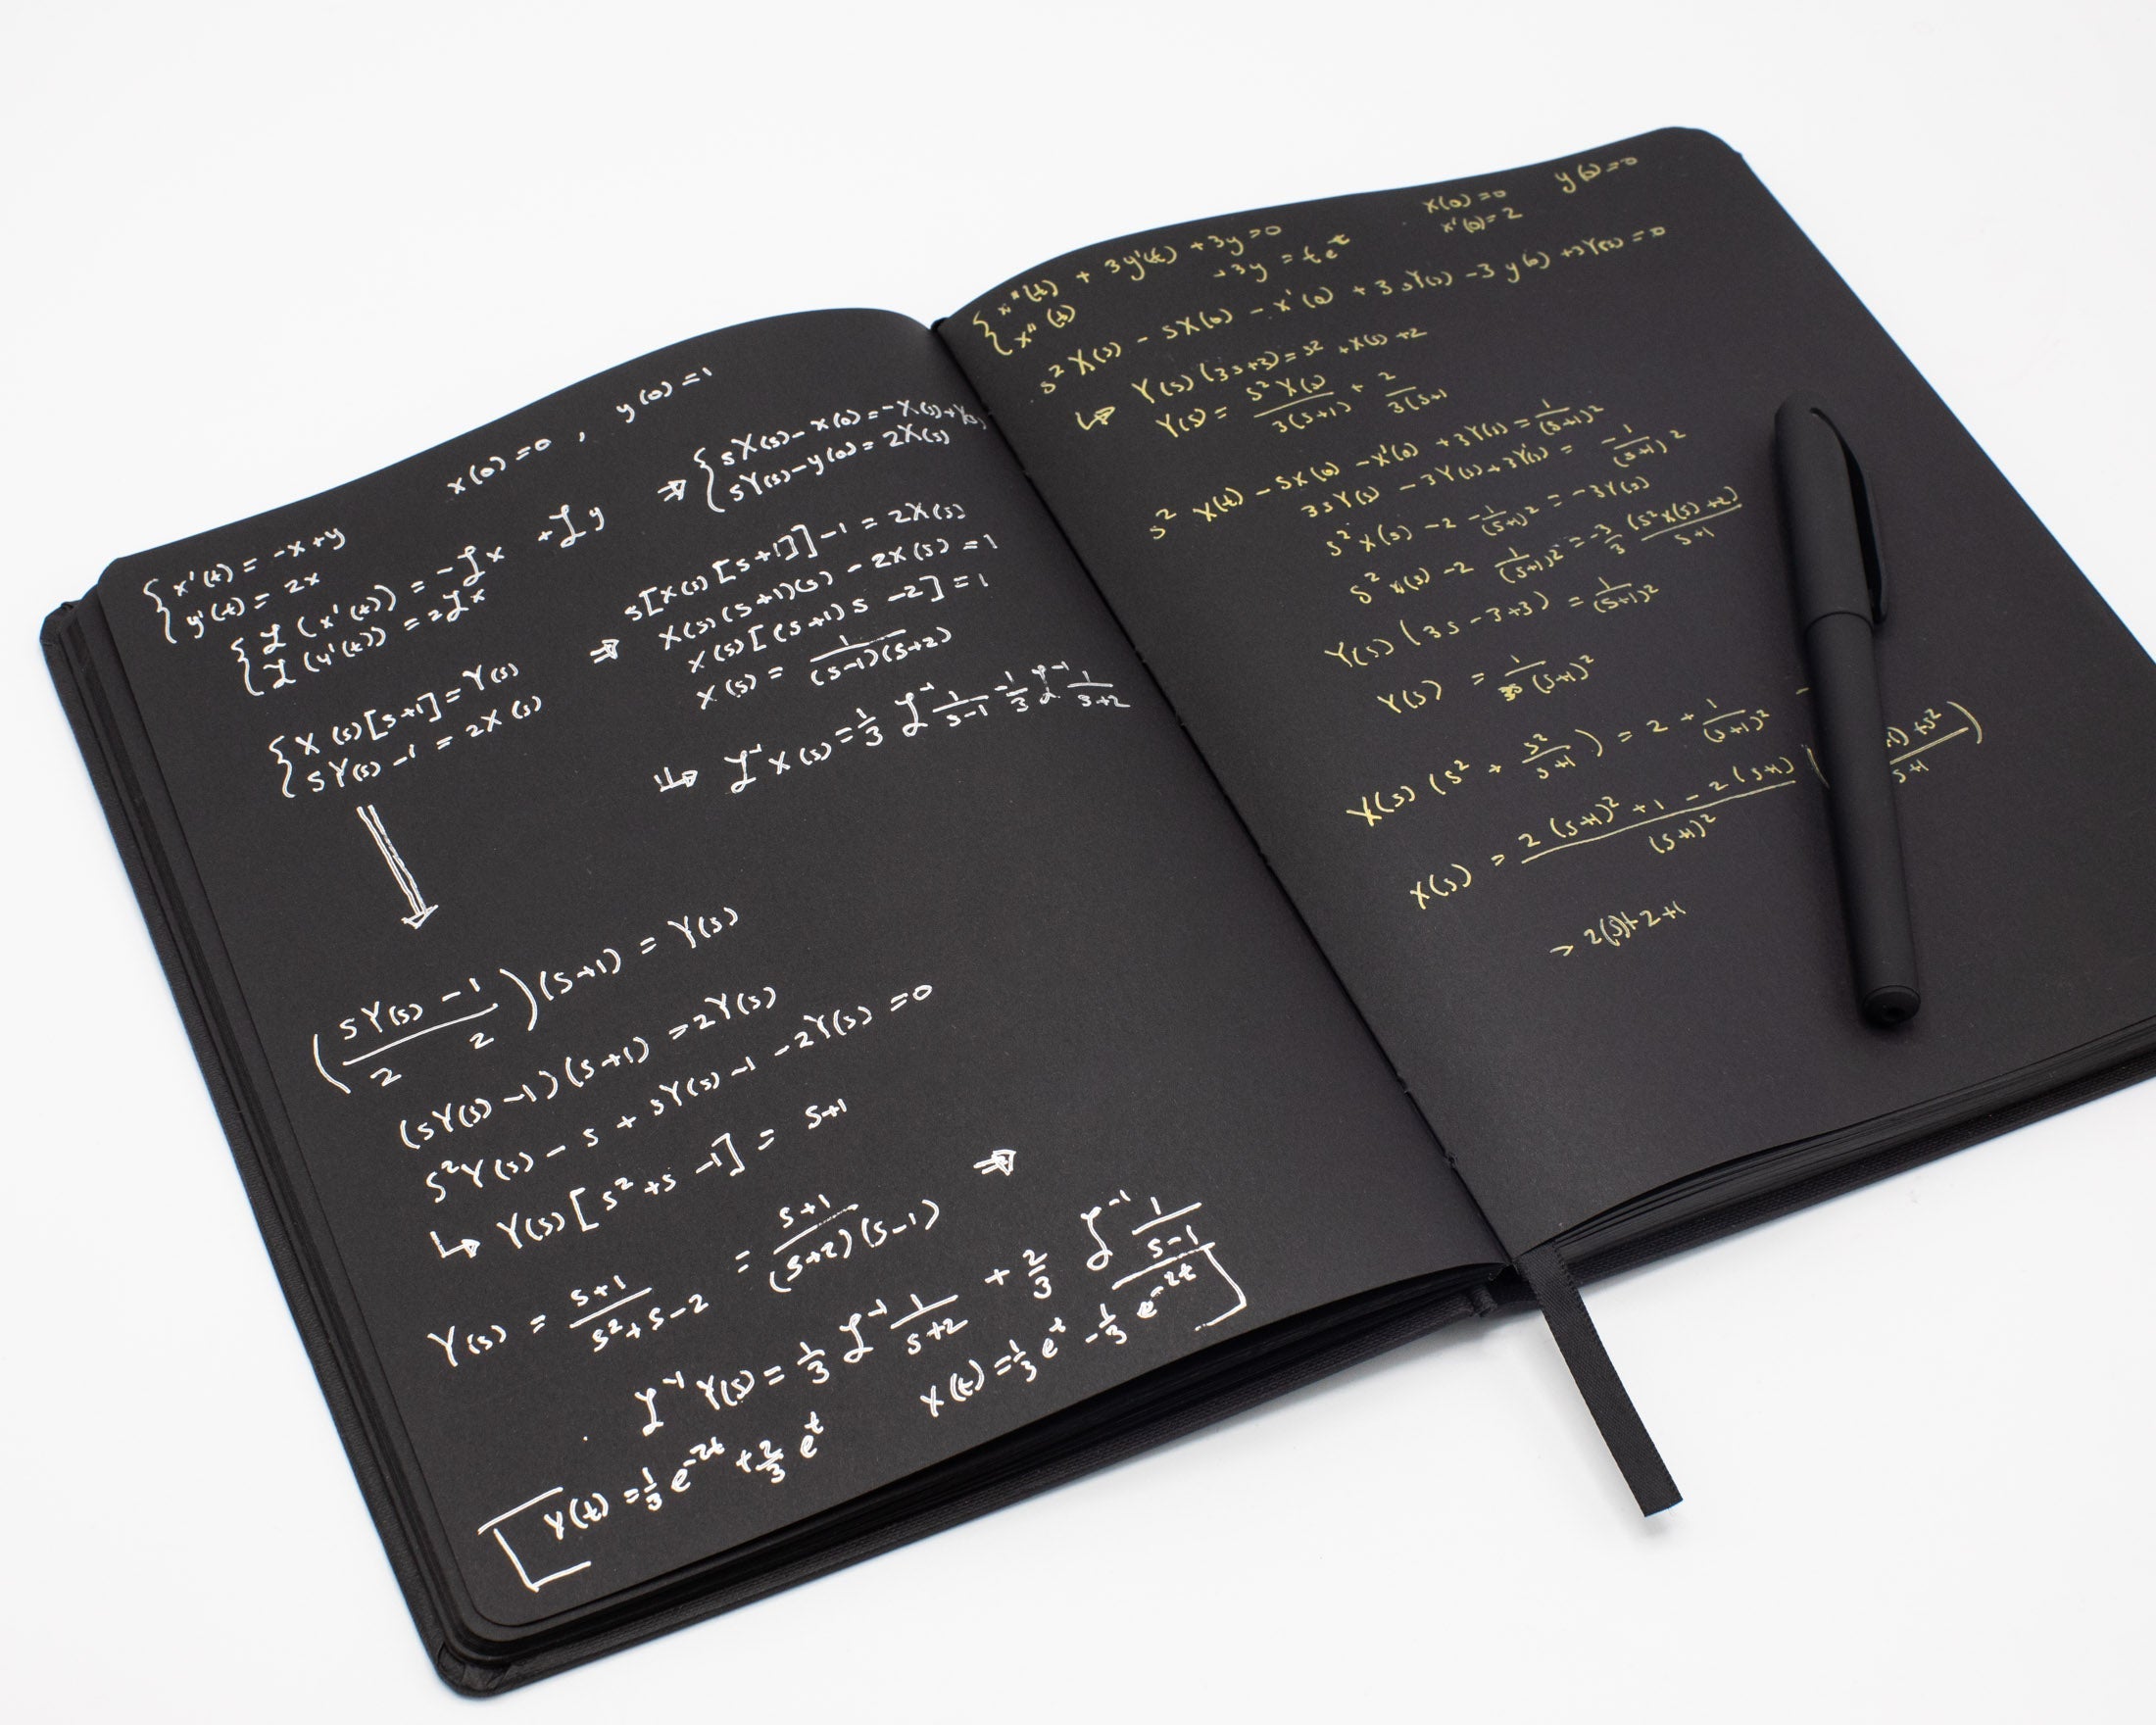 x(0) = 0 , y(0) = 1
{ x'(t) = -x+y
y'(t) = 2x
{ ℒ(x'(t)) = -ℒx +ℒy
ℒ(y'(t)) = 2ℒx
⇒ { sX(s)-x(0) = -X(s)+Y(s)
sY(s)-y(0) = 2X(s)
{ X(s)[s+1] = Y(s)
sY(s)-1 = 2X(s)
⇒ s[X(s)[s+1]]-1 = 2X(s)
X(s)(s+1)(s) - 2X(s) = 1
X(s)[(s+1)s -2] = 1
X(s) = 1/((s-1)(s+2))
↳ ℒ⁻¹ X(s) = 1/3 ℒ⁻¹ 1/(s-1) - 1/3 ℒ⁻¹ 1/(s+2)
((sY(s) -1)/2 2)(s+1) = Y(s)
(sY(s)-1)(s+1) = 2Y(s)
s²Y(s) - s + sY(s) -1 -2Y(s) = 0
↳ Y(s)[s²+s -1] = s+1
Y(s) = (s+1)/(s²+s-2) = (s+1)/((s+2)(s-1)) ⇒
ℒ⁻¹ Y(s) = 1/3 ℒ⁻¹ 1/(s+2) + 2/3 ℒ⁻¹ 1/(s-1)
Y(t) = 1/3 e^-2t + 2/3 e^t
X(t) = 1/3 e^t - 1/3 e^-2t
x(0) = 0 y(0) = 0
x'(0) = 2
{ x''(t) + 3y'(t) + 3y = 0
x''(t) +3y = te^t
s²X(s) - sX(0) - x'(0) + 3sY(s) -3y(0) +3Y(s) = 0
↳ Y(s)(3s+3) = s² +X(s) +2
Y(s) = s²X(s)/3(s+1) + 2/3(s+1
s² X(t) - sX(0) -X'(0) +3Y(s) = 1/(s+1)²
3sY(s) -3Y(s)+3Y(s) = -1/(s+1)²
s²X(s) -2 -1/(s+1)² = -3Y(s)
s²X(s) -2 1/(s+1)² = -3/3 (s²X(s)+2)/(s+1)
Y(s)(3s-3+3) = 1/(s+1)²
Y(s) = 1/3s(s+1)²
X(s)(s² + s²/(s+1)) = 2 + 1/(s+1)² -
X(s) = (2(s+1)² +1 -2(s+1))/(s+1)² ( 1)+s²/(s+1))
→ 2(s)+2+1